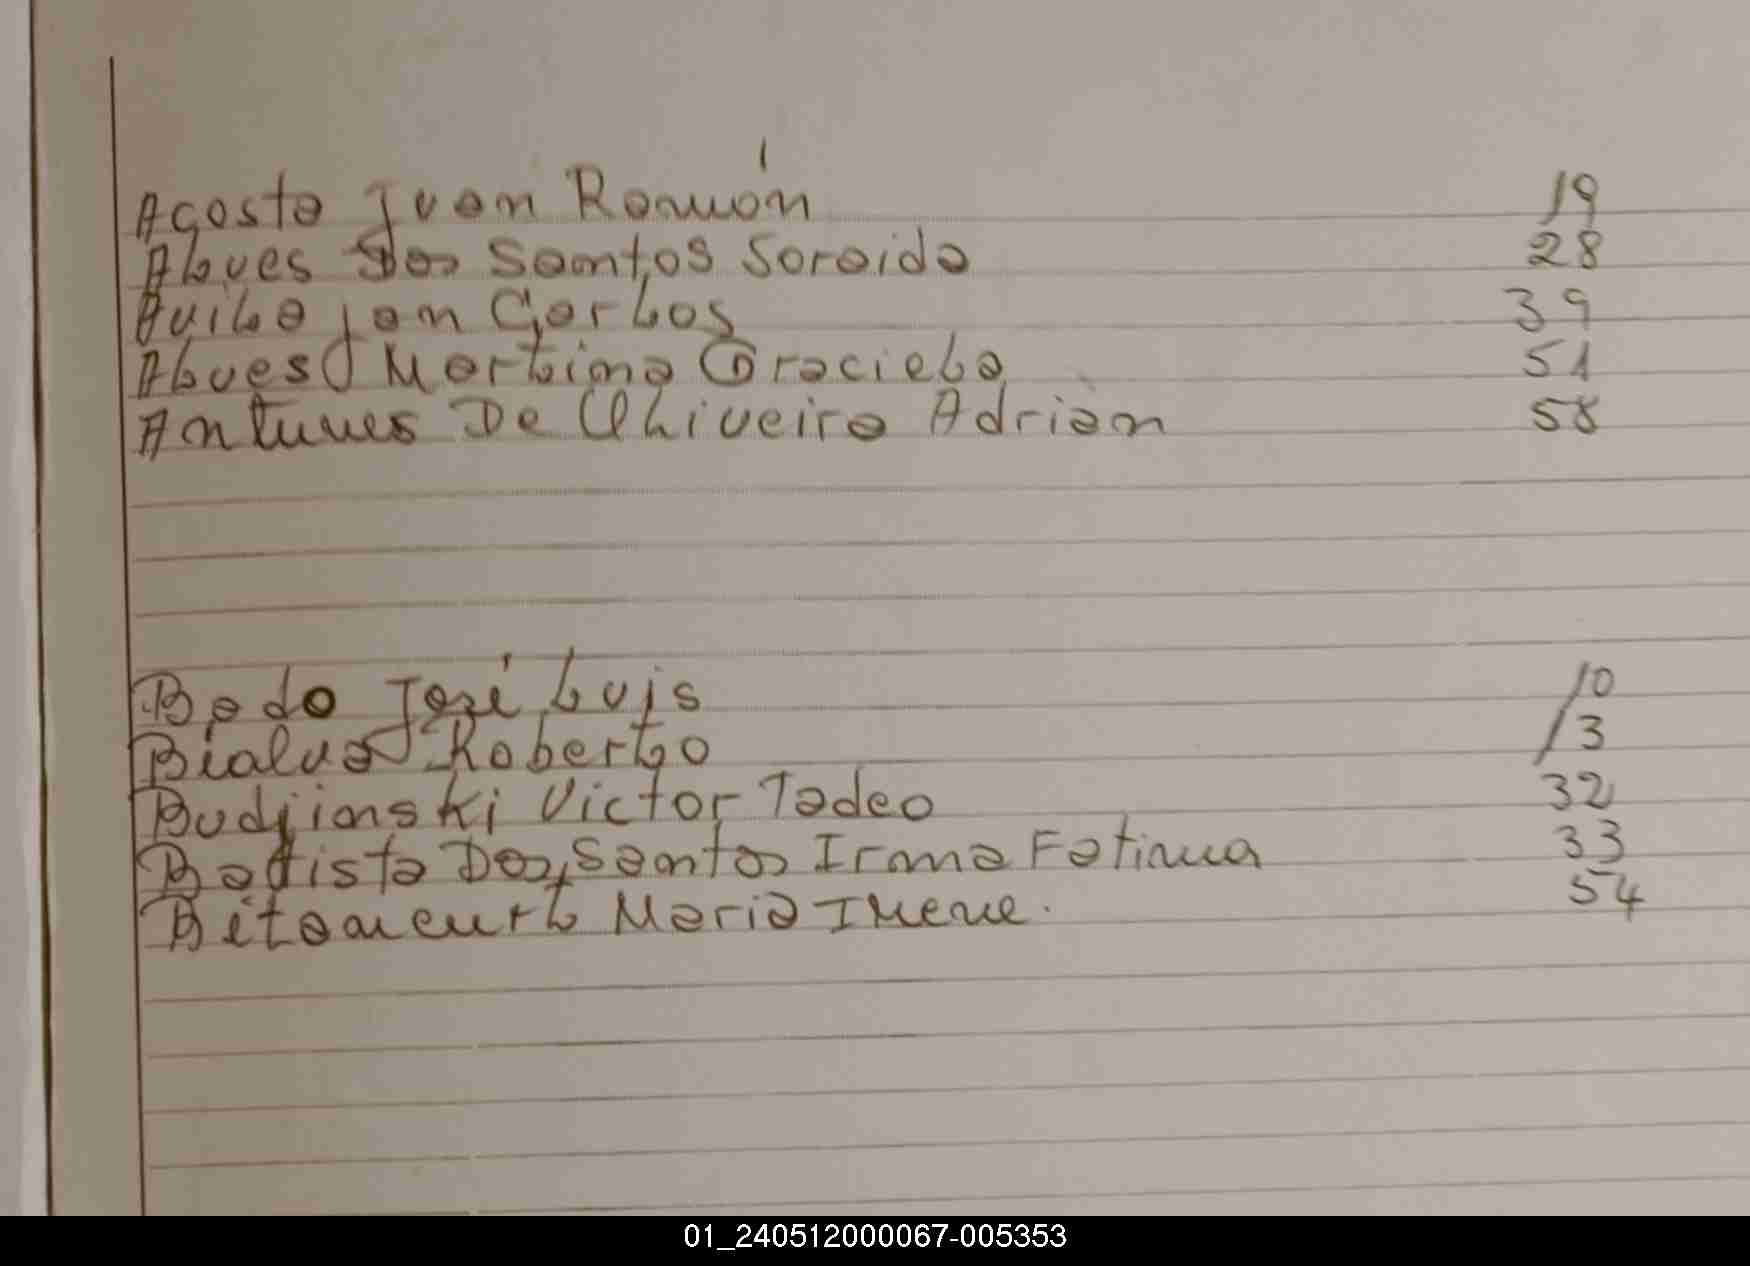 Agosto Juan Ramón 19
Alves Dos Santos Soraida 28
Avila jan Carlos 39
Alves Martina Graciela 51
Antunes De Olhiveira Adrian 58
Bado José Luis 10
Bialva Roberto 13
Budjianski Victor Tadeo 32
Batista Dos Santos Irma Fatima 33
Bitancurt Maria Irene. 54
01_240512000067-005353